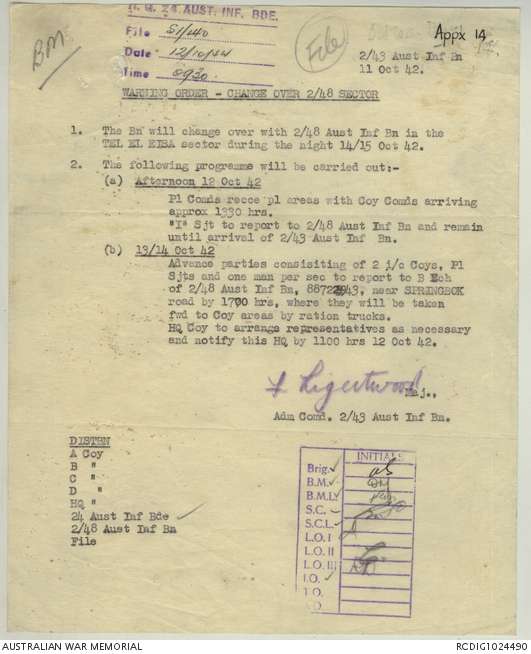 H.Q. 24 AUST. INF. BDE.
File
Date 12/10/
Time 0930
BM
File
Appx 14
2/43 Aust Inf Bn
11 Oct 42.
WARNING ORDER - CHANGE OVER 2/48 SECTOR
1. The Bn will change over with 2/48 Aust Inf Bn in the
TEL EL EISA sector during the night 14/15 Oct 42.
2. The following programme will be carried out:-
(a) Afternoon 12 Oct 42
Pl Comds recce pl areas with Coy Comds arriving
approx 1330 hrs.
"I" Sjt to report to 2/48 Aust Inf Bn and remain
until arrival of 2/43 Aust Inf Bn.
(b) 13/14 Oct 42
Advance parties consisiting of 2 i/c Coys, Pl
Sjts and one man per sec to report to B Ech
of 2/48 Aust Inf Bn, near SPRINGBOK
road by 1700 hrs, where they will be taken
fwd to Coy areas by ration trucks.
HQ Coy to arrange representatives as necessary
and notify this HQ by 1100 hrs 12 Oct 42.
Ligertwood
Maj.,
Adm Comd. 2/43 Aust Inf Bn.
DISTEN
A Coy
B "
C "
D "
HQ "
24 Aust Inf Bde
2/48 Aust Inf Bn
File
INITIALS
Brig.
B.M.
B.M.L.
S.C.
S.C.L.
L.O. I
L.O. II
L.O. III
I.O.
I.O.
AUSTRALIAN WAR MEMORIAL
RCDIG1024490